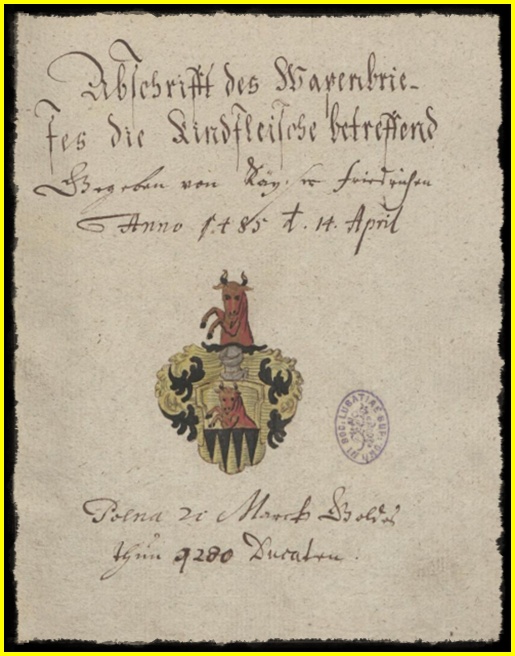 Abschrifft des Wapenbrie-
fes die Rindfleische betreffend
Gegeben von Käyser Friedrichen
Anno 1485 d. 14. April
SOC: LUSATIAE SUP:
Poena 2i Marck Goldes
thun 9280 Ducaten.